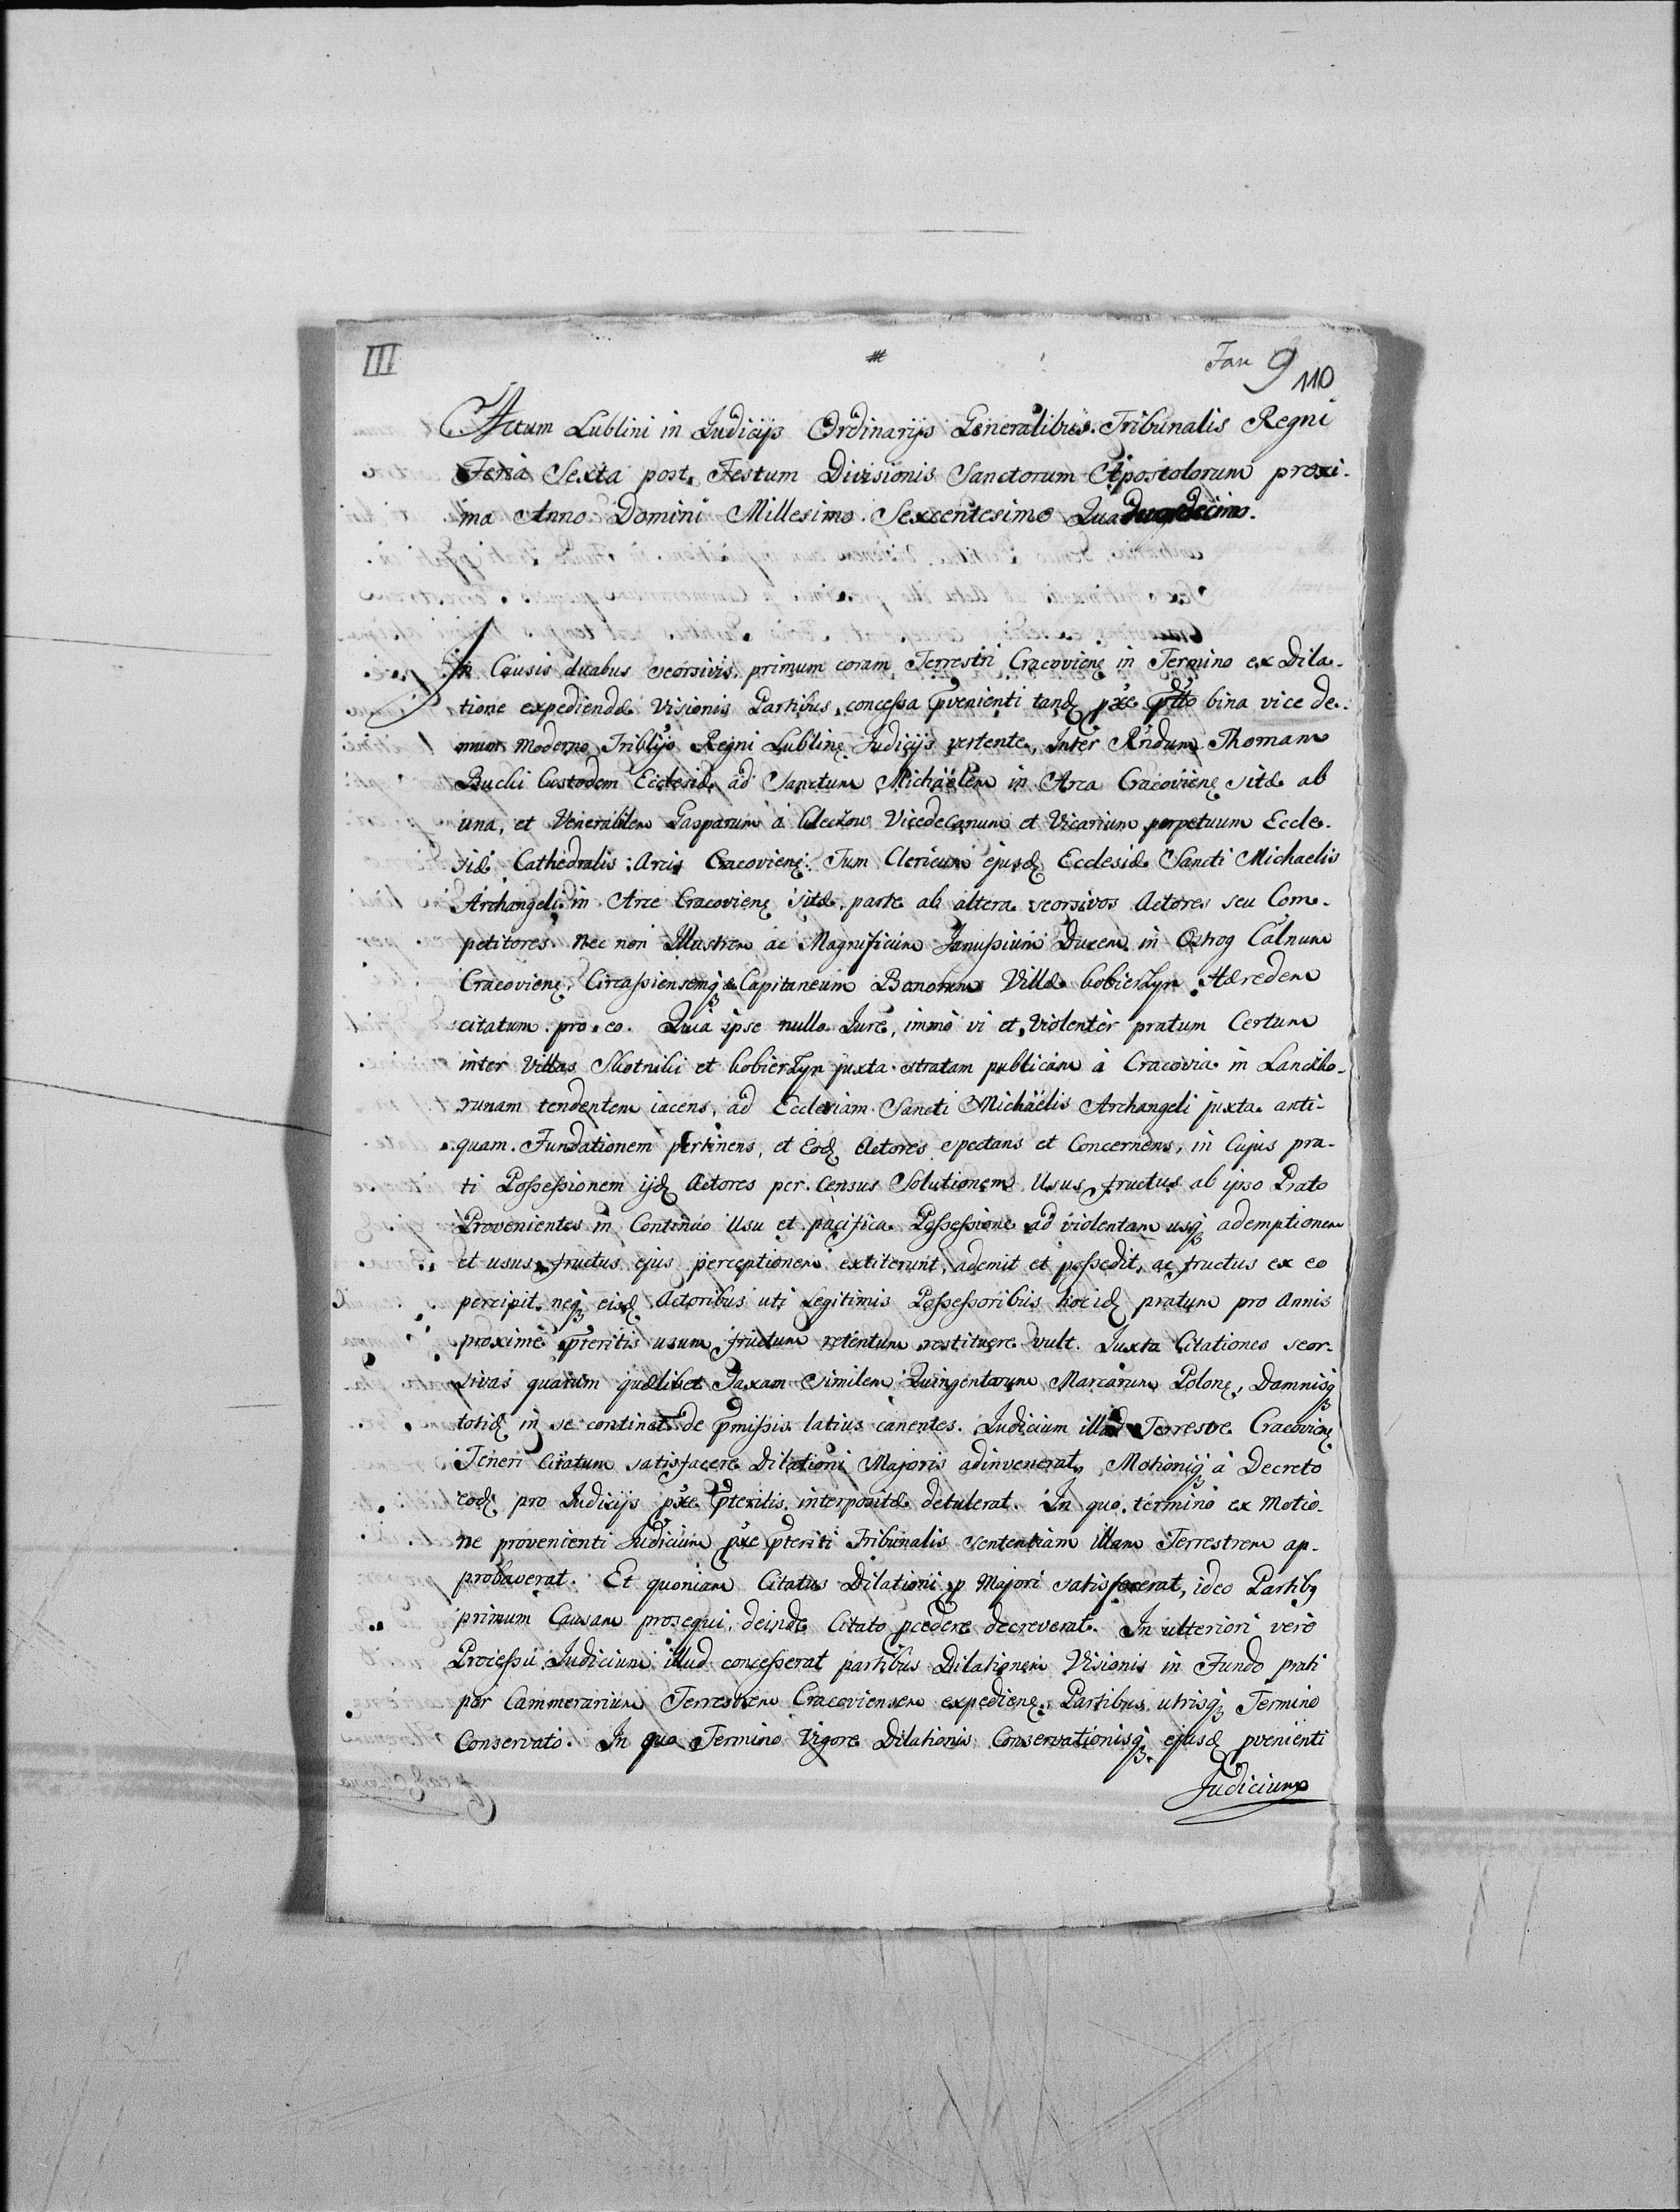 III
Fau 9 110
Actum Lublini in Judicijs Ordinarijs Generalibus Tribunalis Regni
Feria Sexta post Festum Divisionis Sanctorum Apostolorum proxi-
ma Anno Domini Millesimo Sexcentesimo
In Causis duabus seorsivis primum coram Terrestri Cracovienę in Termino ex Dila-
tione expediendæ Visionis Partibus concessa pvenienti tandę pxe ptto bina vice de-
mum moderno Triblijo Regni Lublinę Judicijs vertente, Inter Rndum Thomam
Bucki Custodem Ecclesiæ ad Sanctum Michaëlem in Arce Cracovienę sitæ ab
una, et Venerabilem Gasparum à Kleckow Vicedecanum et Vicarium perpetuum Eccle-
siæ Cathedralis Arcis Cracovienę Tum Clericum ejusdę Ecclesiæ Sancti Michaelis
Archangeli in Arce Cracovienę sitæ parte ab altera seorsivos Actores seu Com-
petitores. Nec non Illustrem ac Magnificum Janussium Ducem in Ostrog Calnum
Cracovienę, Circassiensemqȝ Capitaneum Bonorum Villæ Kobierzyn Hæredem
citatum pro eo. Quia ipse nullo Jure, immò vi et violentèr pratum Certum
inter Villas Skotniki et Kobierzyn juxta stratam publicam à Cracovia in Lancko-
runam tendentem iacens, ad Ecclesiam Sancti Michaëlis Archangeli juxta anti-
quam Fundationem pertinens, et Eodę Actores spectans et Concernens, in Cujus pra-
ti Possessionem ijdę Actores per Census Solutionem Usus fructus ab ipso Prato
Provenientes in Continuo Usu et pacifica Possessione ad violentam usqȝ ademptionem
et usus fructus ejus perceptionem extiterunt, ademit et possedit, ac fructus ex eo
percipit neqȝ eisdę Actoribus uti Legitimis Possessoribus hocidę pratum pro Annis
proximè pteritis usum fructum retentum restituere vult. Juxta Citationes seor-
sivas quarum quælibet Taxam similem Quingentarum Marcarum Polonę, Damnisqȝ
totidę in se continet de pmissis latius canentes. Judicium illud Terrestre Cracovienę
Teneri Citatum satisfacere Dilationi Majoris adinvenerat, Motioniqȝ à Decreto
eodę pro Judicijs pxe pteritis interpositæ detulerat. In quo termino ex Motio-
ne provenienti Judicium pxe pteriti Tribunalis sententiam illam Terrestrem ap-
probaverat. Et quoniam Citatus Dilationi p Majori satisfecerat, ideo Partibȝ
primum Causam prosequi, deinde Citato pcedere decreverat. In ulteriori verò
Processu Judicium illud concesserat partibus Dilationem Visionis in Fundo prati
per Cammerarium Terrestrem Cracoviensem expedienę Partibus utrisqȝ Termino
Conservato. In quo Termino Vigore Dilationis Conservationisqȝ ejusdę pvenienti
Judicium